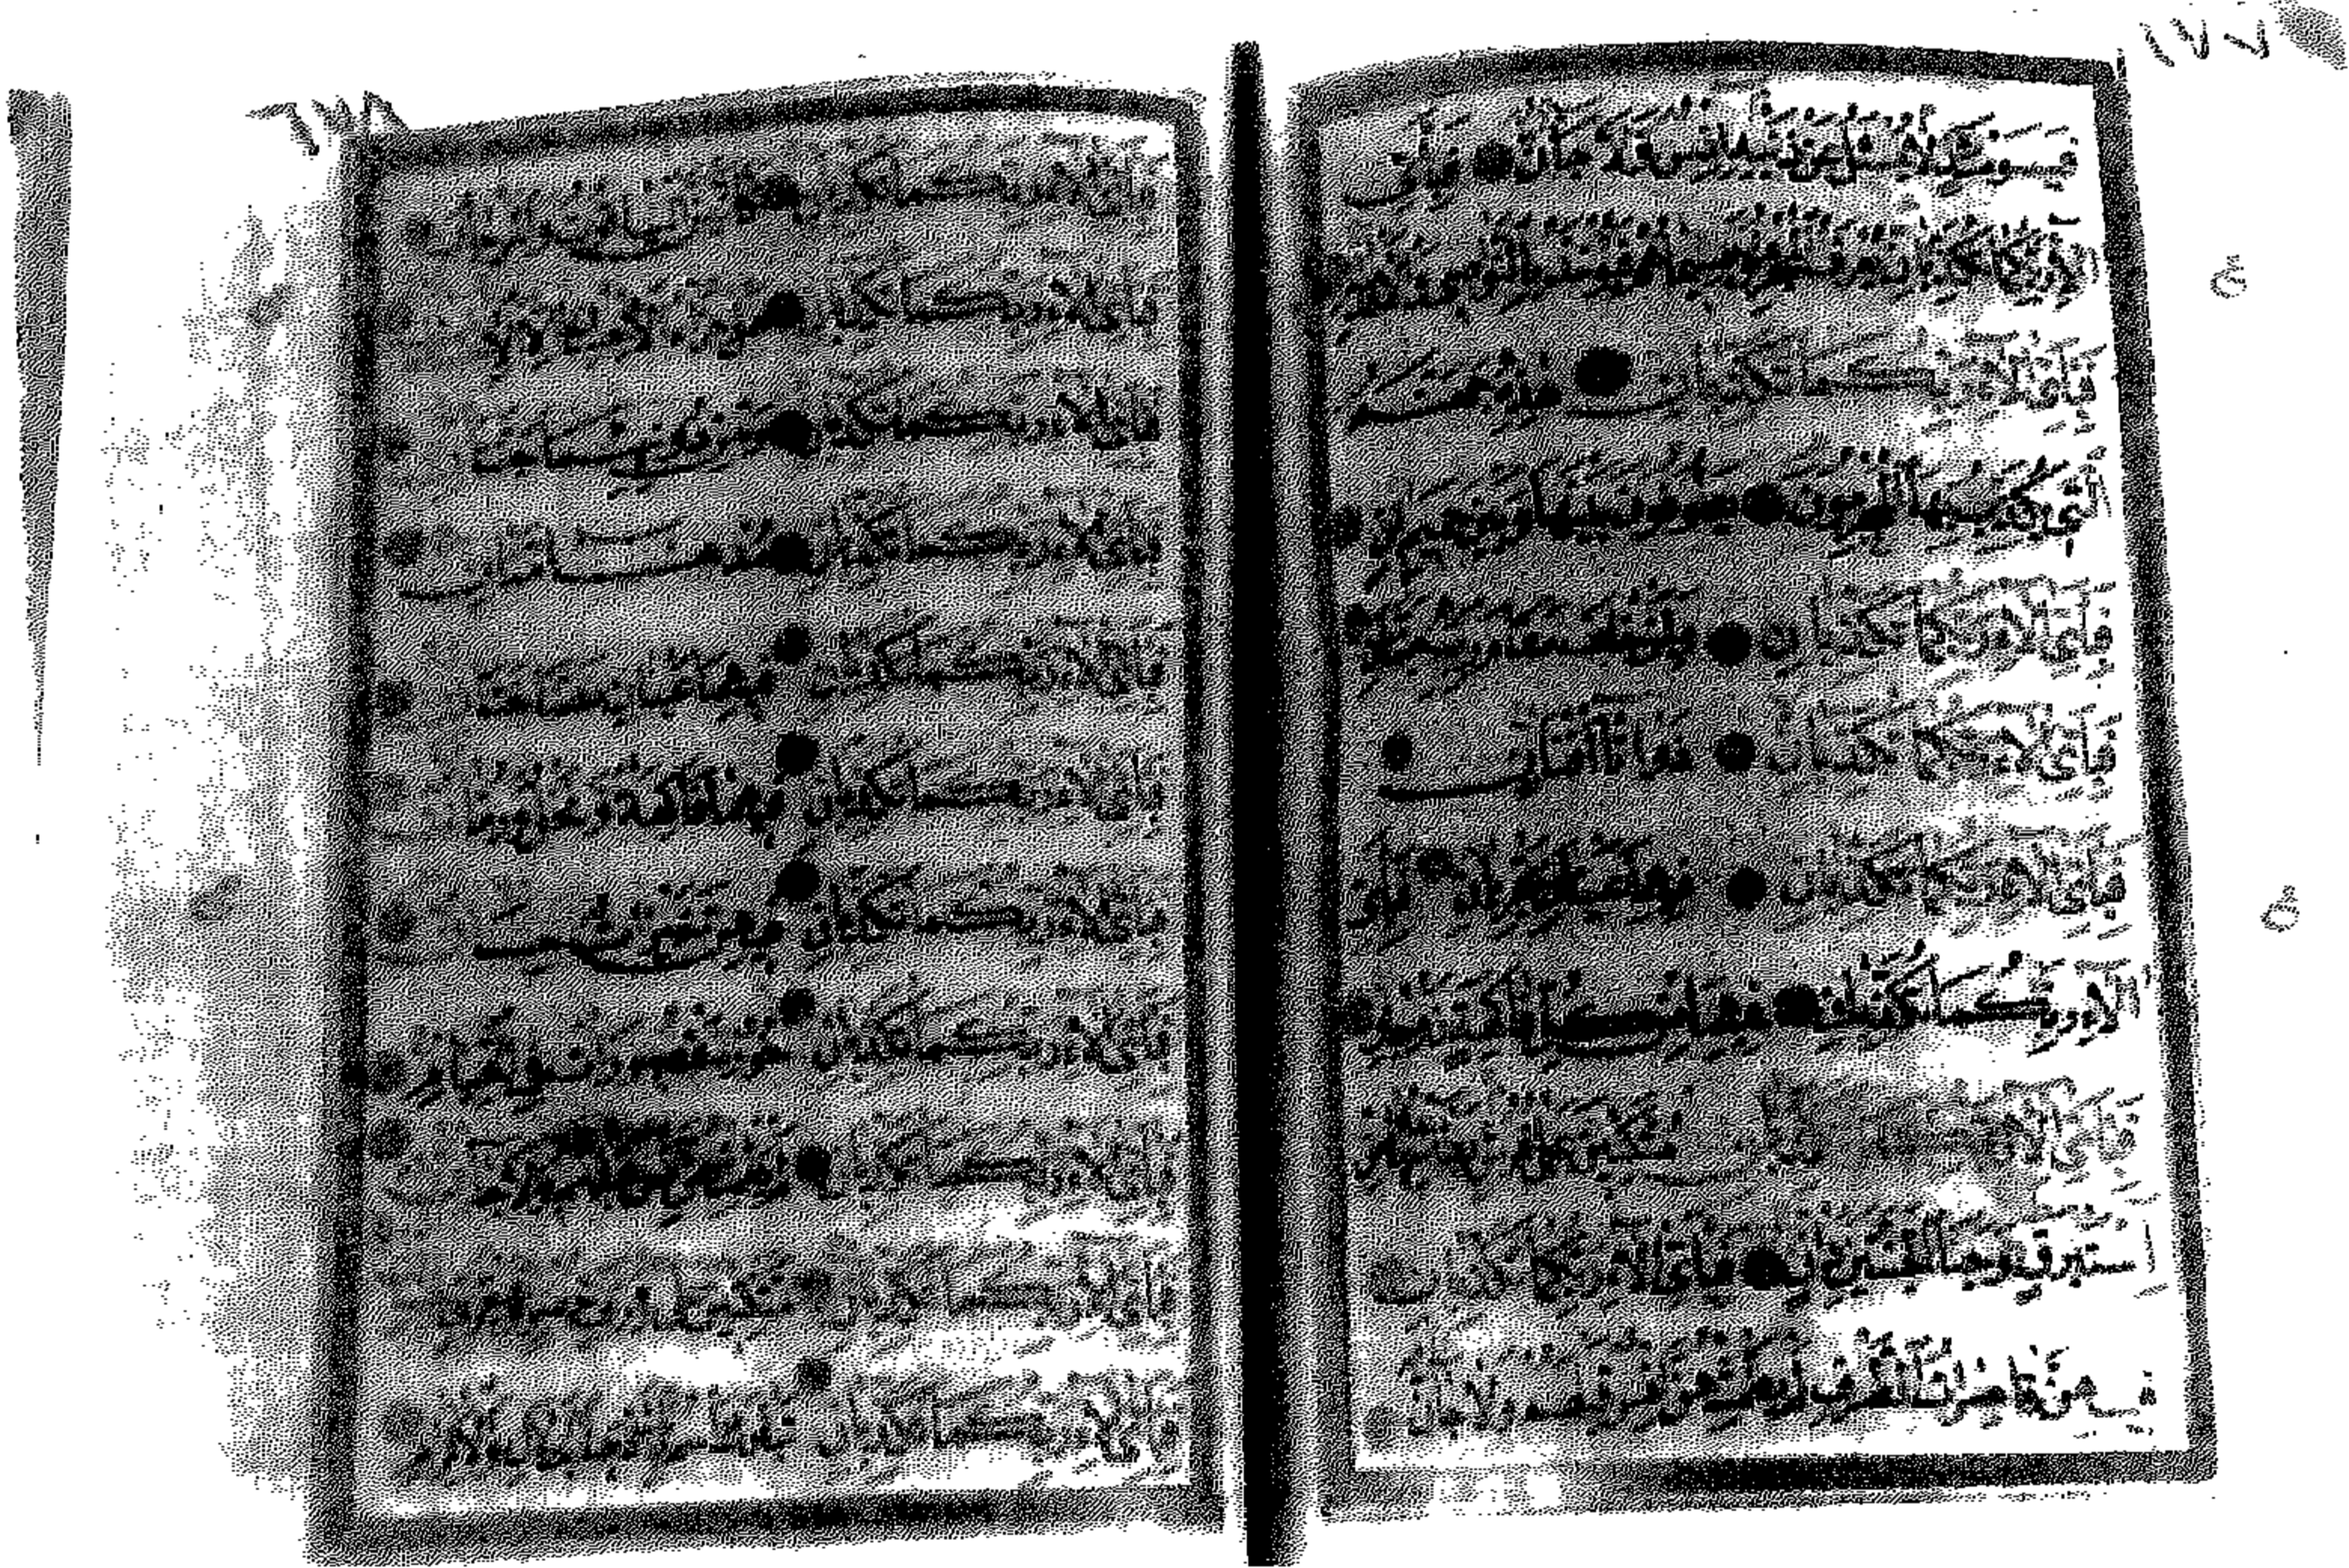 ١٧٧
فَيَوْمَئِذٍ لَا يُسْئَلُ عَنْ ذَنْبِهِ إِنْسٌ وَلَا جَانٌّ فَبِأَيِّ
آلَاءِ رَبِّكُمَا تُكَذِّبَانِ يُعْرَفُ الْمُجْرِمُونَ بِسِيمَاهُمْ فَيُؤْخَذُ بِالنَّوَاصِي وَالْأَقْدَامِ
فَبِأَيِّ آلَاءِ رَبِّكُمَا تُكَذِّبَانِ هَذِهِ جَهَنَّمُ
الَّتِي يُكَذِّبُ بِهَا الْمُجْرِمُونَ يَطُوفُونَ بَيْنَهَا وَبَيْنَ حَمِيمٍ آنٍ
فَبِأَيِّ آلَاءِ رَبِّكُمَا تُكَذِّبَانِ وَلِمَنْ خَافَ مَقَامَ رَبِّهِ جَنَّتَانِ
فَبِأَيِّ آلَاءِ رَبِّكُمَا تُكَذِّبَانِ ذَوَاتَا أَفْنَانٍ
فَبِأَيِّ آلَاءِ رَبِّكُمَا تُكَذِّبَانِ فِيهِمَا عَيْنَانِ تَجْرِيَانِ فَبِأَيِّ
آلَاءِ رَبِّكُمَا تُكَذِّبَانِ فِيهِمَا مِنْ كُلِّ فَاكِهَةٍ زَوْجَانِ
فَبِأَيِّ آلَاءِ رَبِّكُمَا تُكَذِّبَانِ مُتَّكِئِينَ عَلَى فُرُشٍ بَطَائِنُهَا مِنْ
إِسْتَبْرَقٍ وَجَنَى الْجَنَّتَيْنِ دَانٍ فَبِأَيِّ آلَاءِ رَبِّكُمَا تُكَذِّبَانِ
فِيهِنَّ قَاصِرَاتُ الطَّرْفِ لَمْ يَطْمِثْهُنَّ إِنْسٌ قَبْلَهُمْ وَلَا جَانٌّ
١٧٨
فَبِأَيِّ آلَاءِ رَبِّكُمَا تُكَذِّبَانِ كَأَنَّهُنَّ الْيَاقُوتُ وَالْمَرْجَانُ
فَبِأَيِّ آلَاءِ رَبِّكُمَا تُكَذِّبَانِ هَلْ جَزَاءُ الْإِحْسَانِ إِلَّا
فَبِأَيِّ آلَاءِ رَبِّكُمَا تُكَذِّبَانِ وَمِنْ دُونِهِمَا جَنَّتَانِ
فَبِأَيِّ آلَاءِ رَبِّكُمَا تُكَذِّبَانِ مُدْهَامَّتَانِ
فَبِأَيِّ آلَاءِ رَبِّكُمَا تُكَذِّبَانِ فِيهِمَا عَيْنَانِ نَضَّاخَتَانِ
فَبِأَيِّ آلَاءِ رَبِّكُمَا تُكَذِّبَانِ فِيهِمَا فَاكِهَةٌ وَنَخْلٌ وَرُمَّانٌ
فَبِأَيِّ آلَاءِ رَبِّكُمَا تُكَذِّبَانِ فِيهِنَّ خَيْرَاتٌ حِسَانٌ
فَبِأَيِّ آلَاءِ رَبِّكُمَا تُكَذِّبَانِ حُورٌ مَقْصُورَاتٌ فِي الْخِيَامِ
فَبِأَيِّ آلَاءِ رَبِّكُمَا تُكَذِّبَانِ لَمْ يَطْمِثْهُنَّ إِنْسٌ قَبْلَهُمْ وَلَا جَانٌّ
فَبِأَيِّ آلَاءِ رَبِّكُمَا تُكَذِّبَانِ مُتَّكِئِينَ عَلَى رَفْرَفٍ خُضْرٍ وَعَبْقَرِيٍّ
فَبِأَيِّ آلَاءِ رَبِّكُمَا تُكَذِّبَانِ تَبَارَكَ اسْمُ رَبِّكَ ذِي الْجَلَالِ وَالْإِكْرَامِ